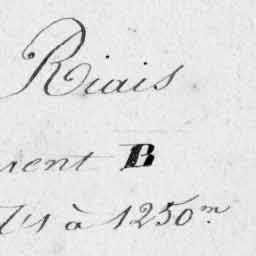 Riais
ment B
à 1250m.